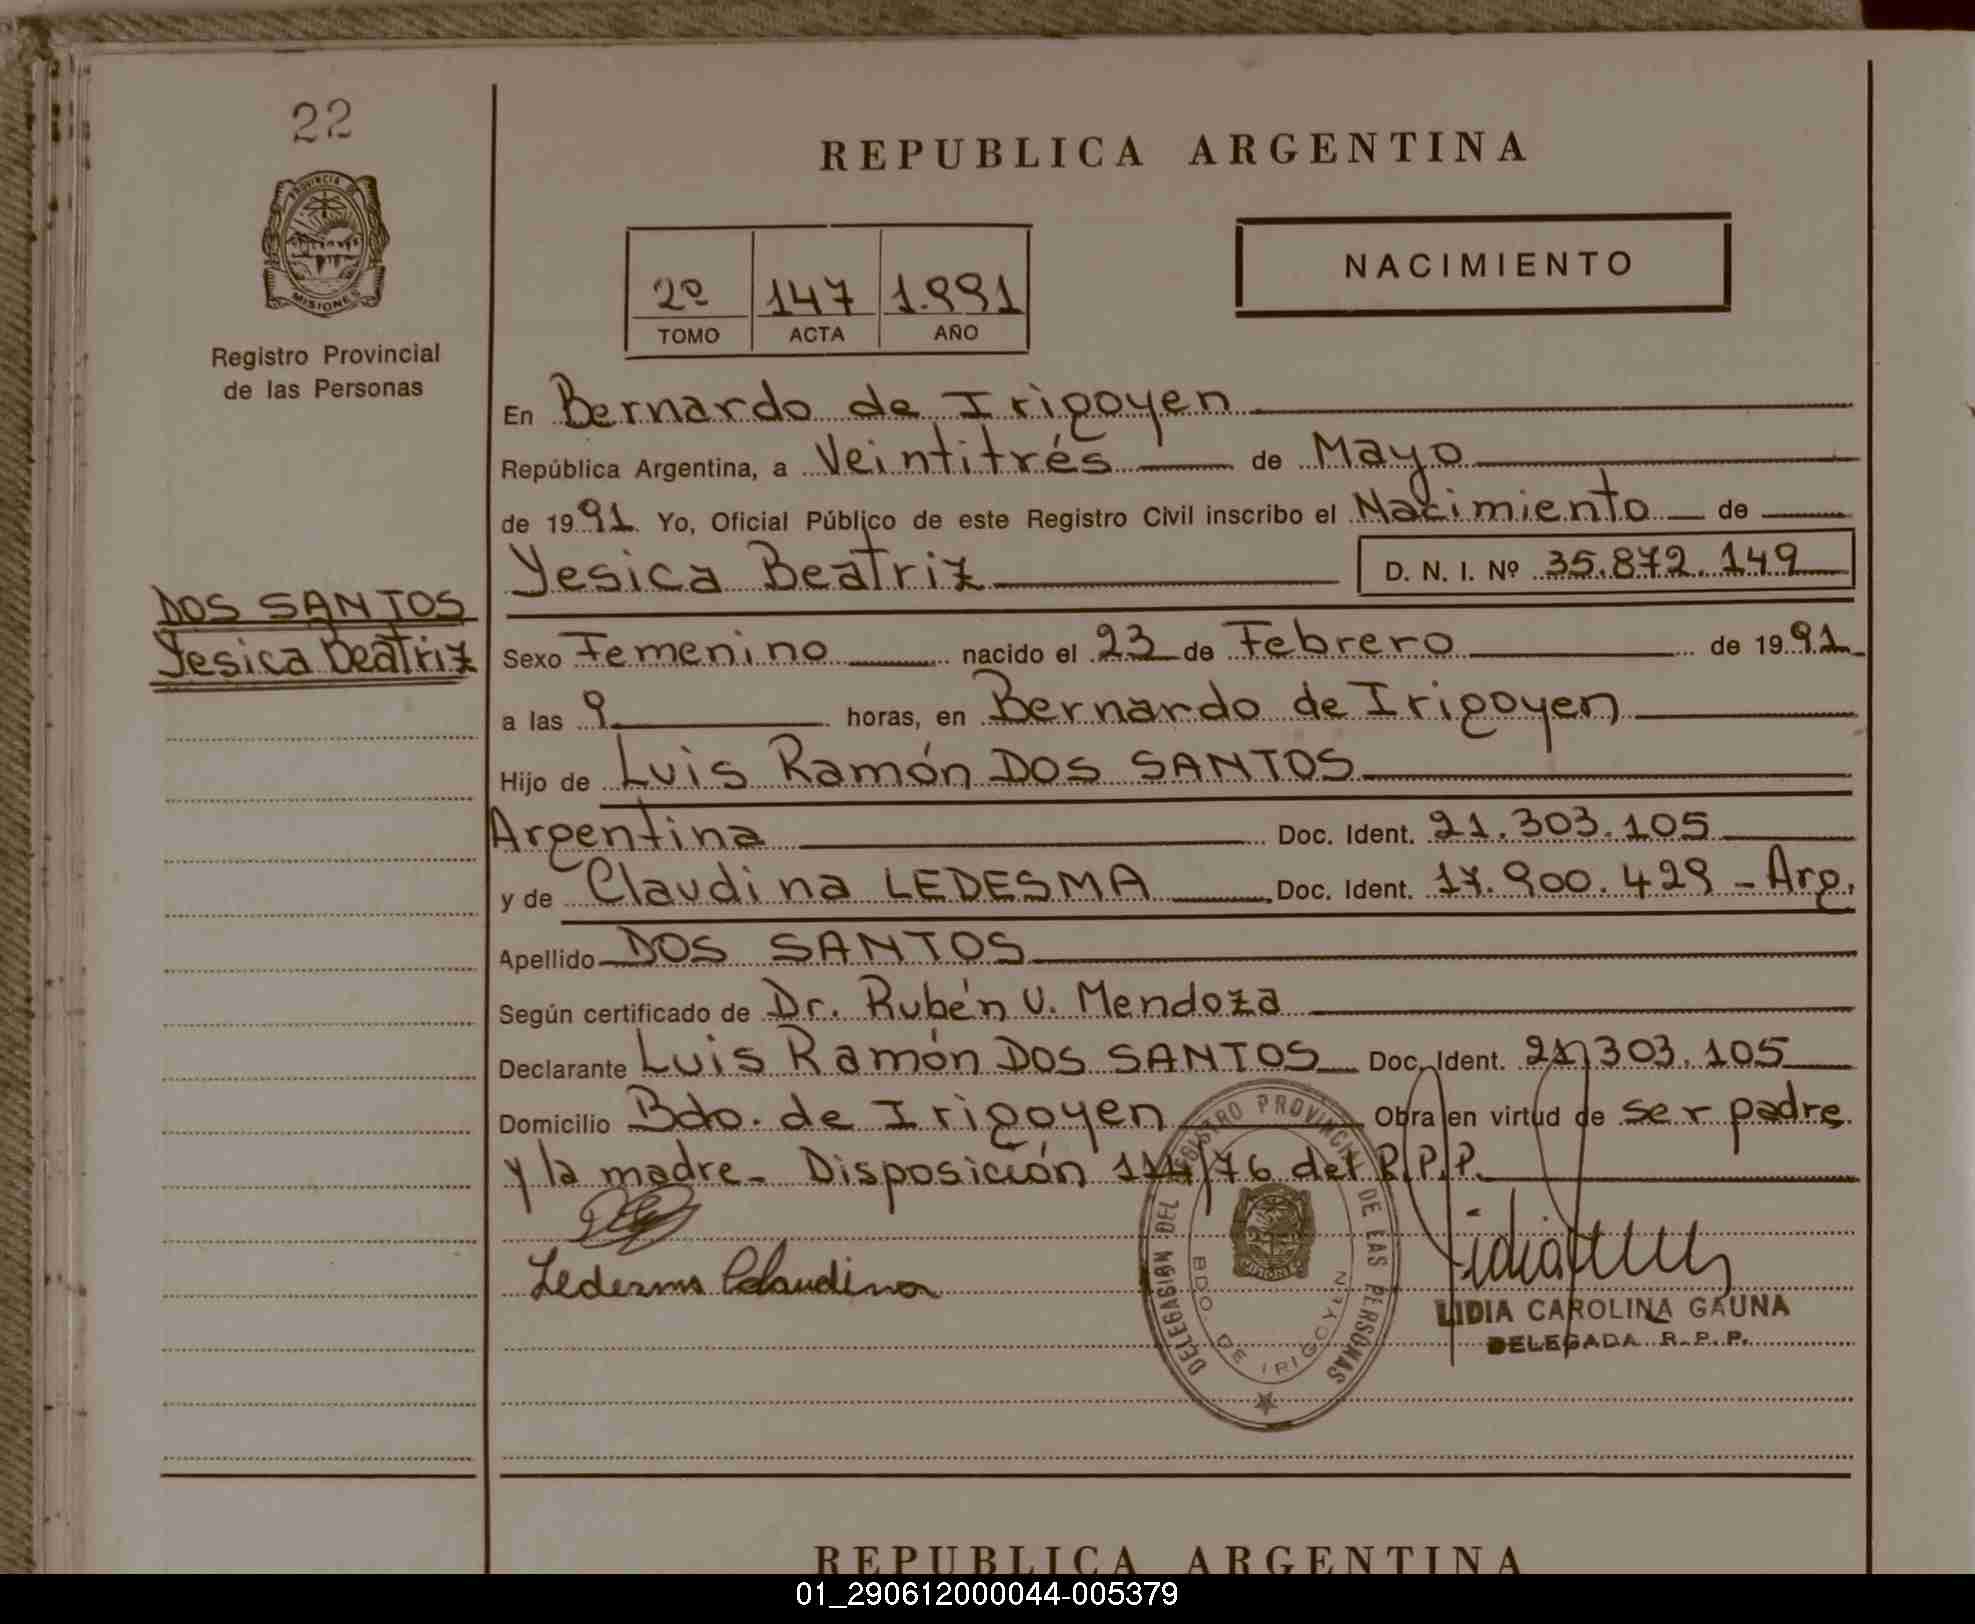 22
PROVINCIA DE
MISIONES
Registro Provincial
de las Personas
DOS SANTOS
Yesica Beatriz
REPUBLICA ARGENTINA
2º 147 1.991
TOMO ACTA AÑO
NACIMIENTO
En Bernardo de Irigoyen
República Argentina, a Veintitrés de Mayo
de 1991. Yo, Oficial Público de este Registro Civil inscribo el Nacimiento de
Yesica Beatriz D. N. I. Nº 35.872.149
Sexo Femenino nacido el 23 de Febrero de 1991
a las 9 horas, en Bernardo de Irigoyen
Hijo de Luis Ramón DOS SANTOS
Argentina Doc. Ident. 21.303.105
y de Claudina LEDESMA Doc. Ident. 17.900.429 - Arg.
Apellido DOS SANTOS
Según certificado de Dr. Rubén V. Mendoza
Declarante Luis Ramón DOS SANTOS Doc. Ident. 21.303.105
Domicilio Bdo. de Irigoyen Obra en virtud de ser padre
y la madre - Disposición 114/76 del R.P.P.
Ledesma Claudina
DELEGASIÓN DEL REGISTRO PROVINCIAL DE LAS PERSONAS
BDO. DE IRIGOYEN
MISIONES
LIDIA CAROLINA GAUNA
DELEGADA R.P.P.
REPUBLICA ARGENTINA
01_290612000044-005379